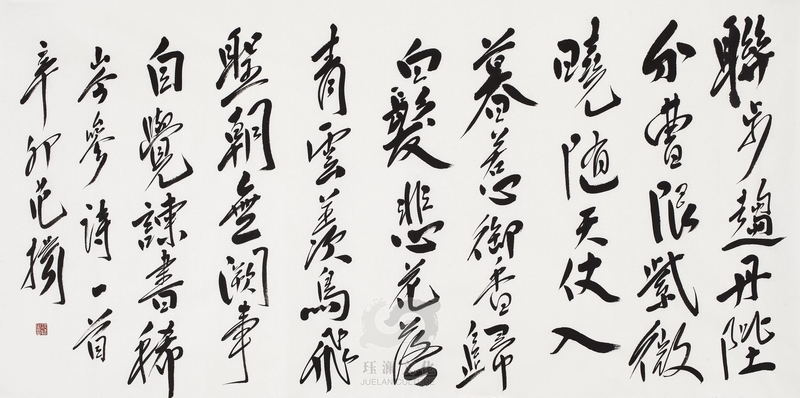 聯步趨丹陛
分曹限紫微
曉随天仗入
暮惹御香歸
白髮悲花落
青雲羨鳥飛
聖朝無闕事
自覺諫書稀
岑參詩一首
辛卯范揚
珏瀾文化
JUELAN CULTURE